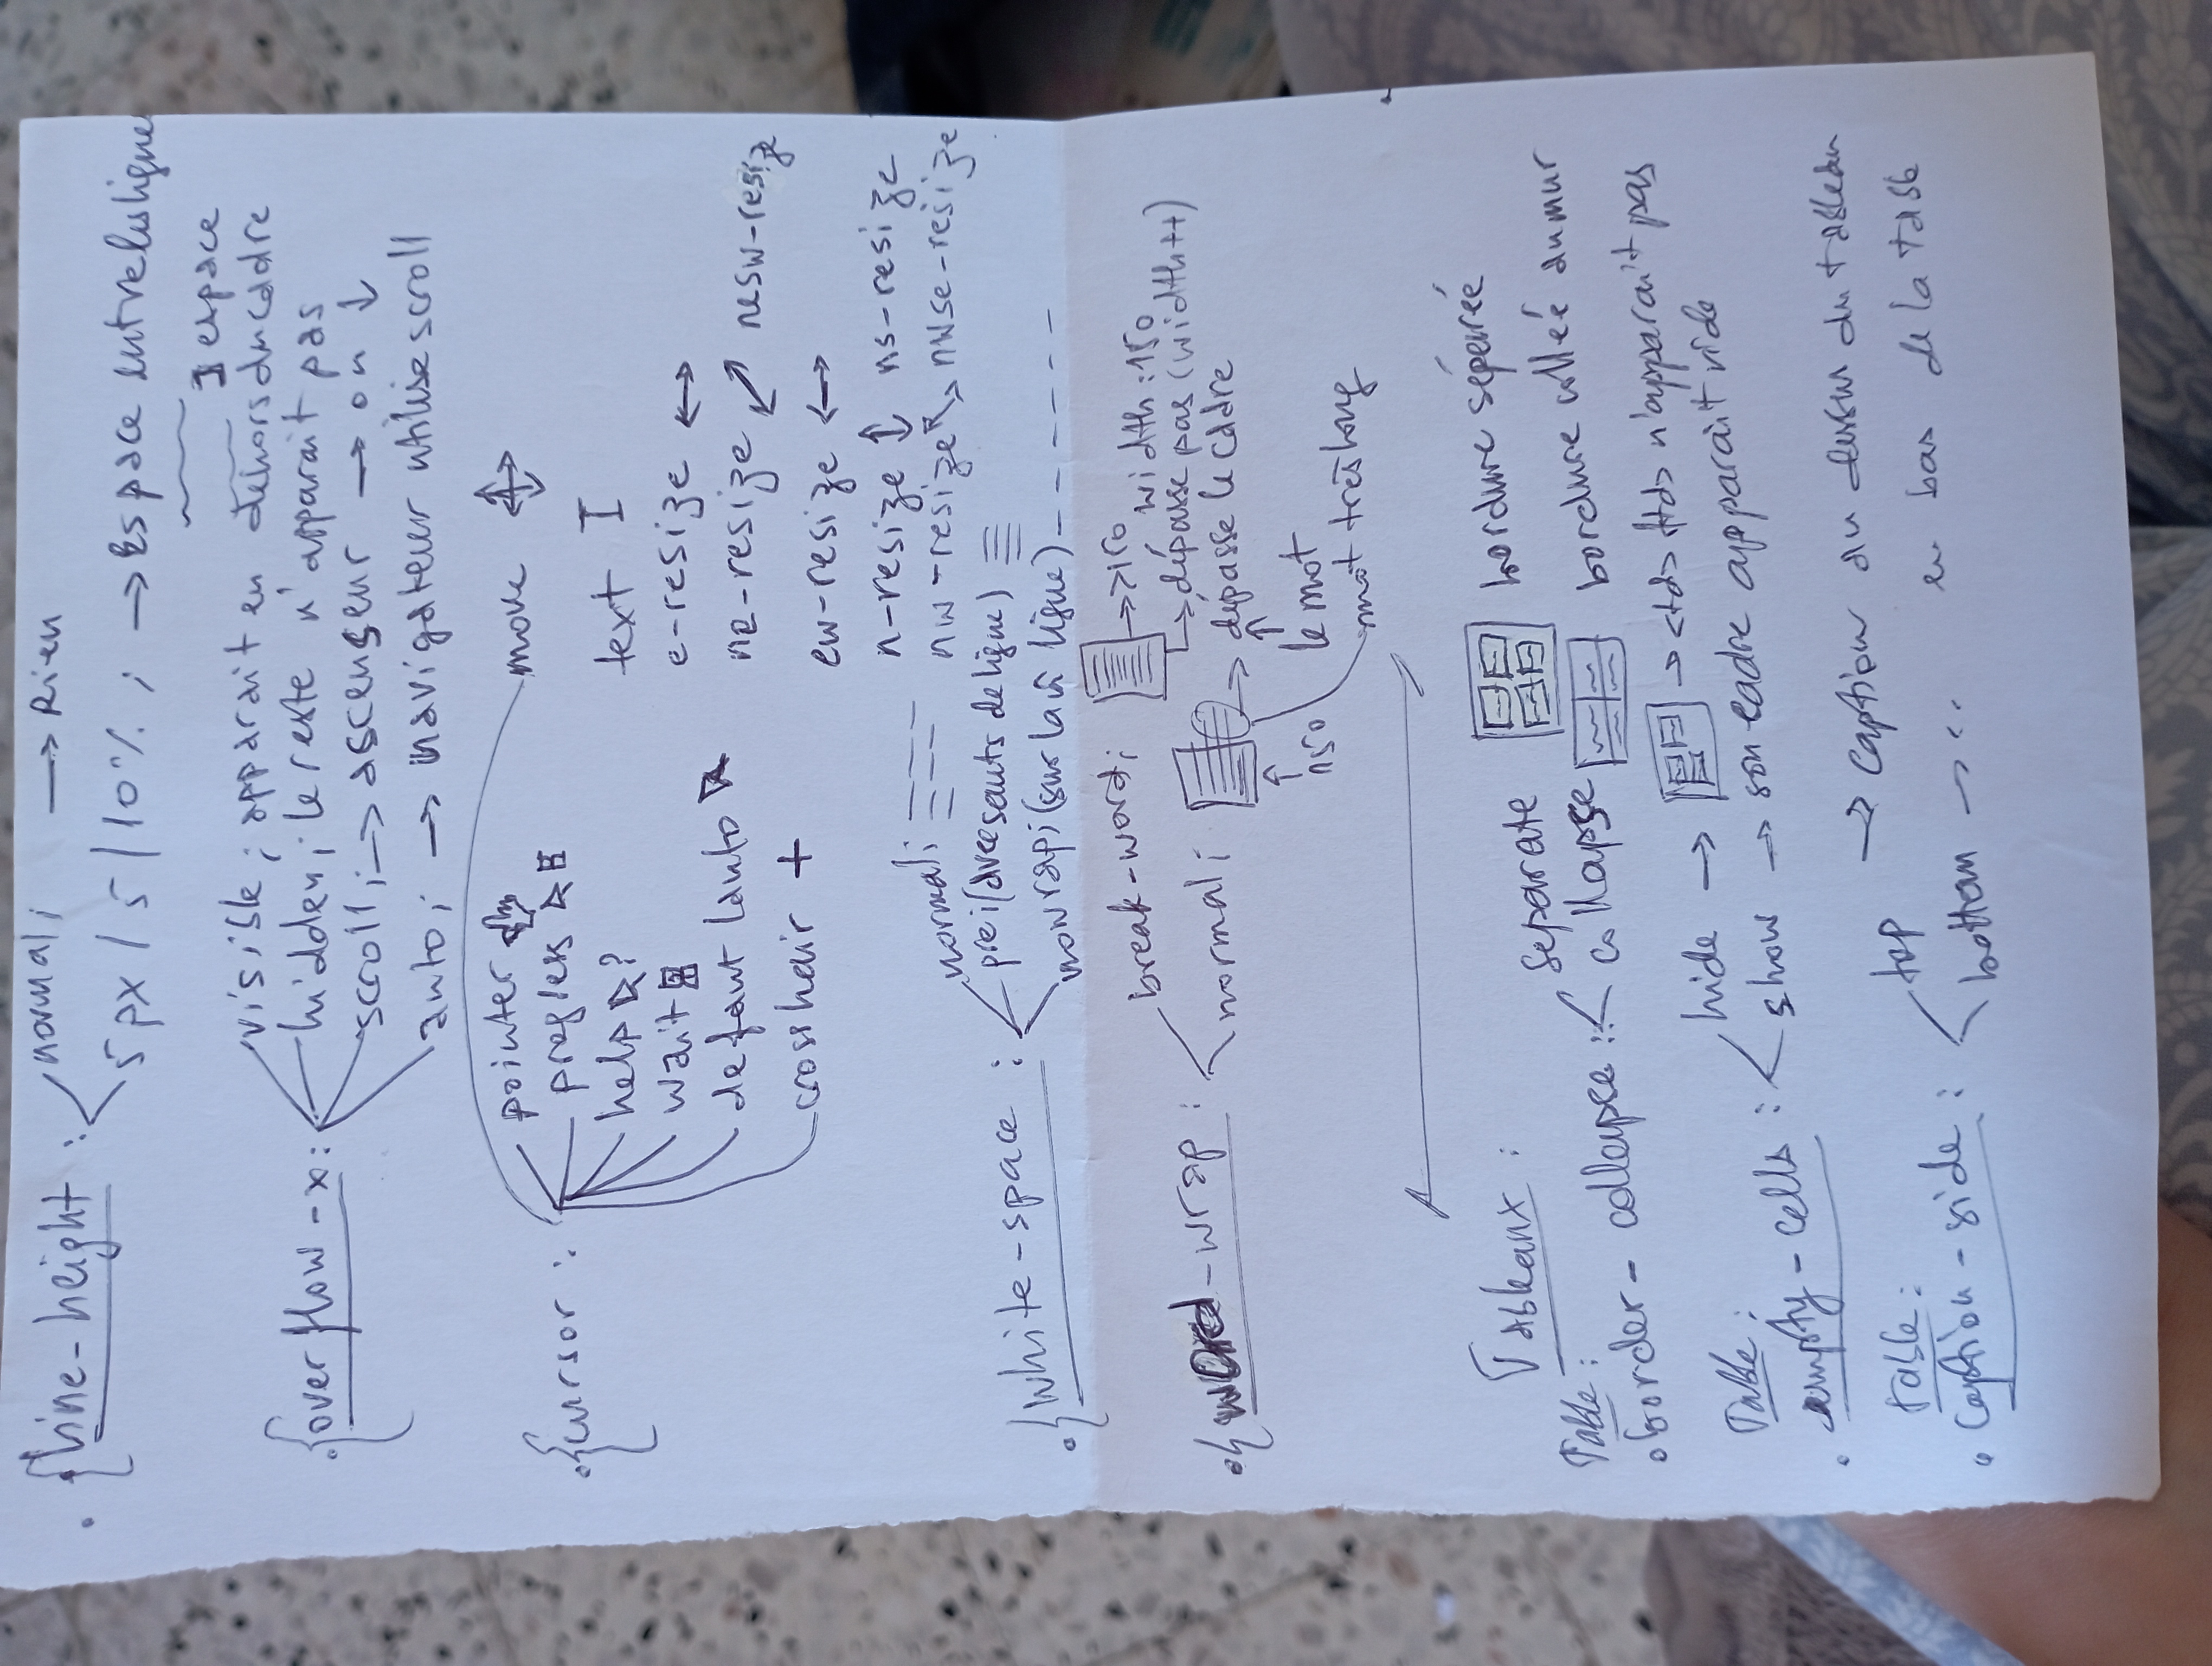 {line-height : normal; → Rien
5px / 5 / 10% ; → Espace entre les lignes
espace
{overflow-x : visible ; apparait en dehors du cadre
hidden ; le reste n'apparait pas
scroll ; → ascenseur → on ↓
auto ; → navigateur utilise scroll
{cursor : pointer
progress
help ?
wait
defaut /auto
crosshair +
move
text I
e-resize ↔
ne-resize nesw-resize
ew-resize ↔
n-resize ↕ ns-resize
nw-resize nwse-resize
{white-space : normal;
pre; (avec sauts de ligne)
nowrap; (sur la ligne) - - - - - -
{word-wrap : break-word; → >150
width : 150
→ dépasse pas (width++)
normal ; → dépasse le cadre
150
le mot
mot très long
Tableaux :
Table :
border-collapse : separate bordure séparée
collapse bordure collée au mur
Table :
empty-cells : hide → → <td> </td> n'apparait pas
show → son cadre apparait vide
table :
caption-side : top → caption au dessus du tableau
bottom → .. en bas de la table